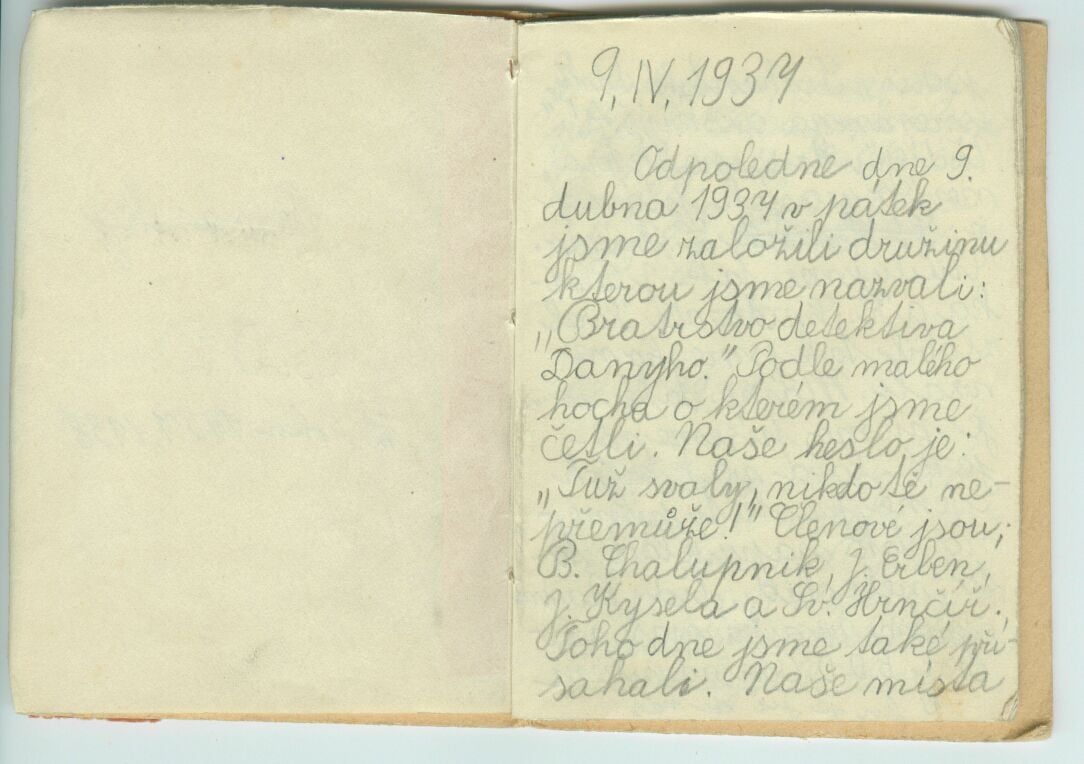 9. IV. 1937
Odpoledne dne 9.
dubna 1937 v pátek
jsme založili družinu
kterou jsme nazvali:
„Bratrstvo detektiva
Danyho." Podle malého
hocha o kterém jsme
četli. Naše heslo je:
„Tuž svaly, nikdo tě ne-
přemůže!" Členové jsou;
B. Chalupník, J. Erben,
J. Kysela a Sv. Hrnčíř.
Toho dne jsme také při-
sahali. Naše místa